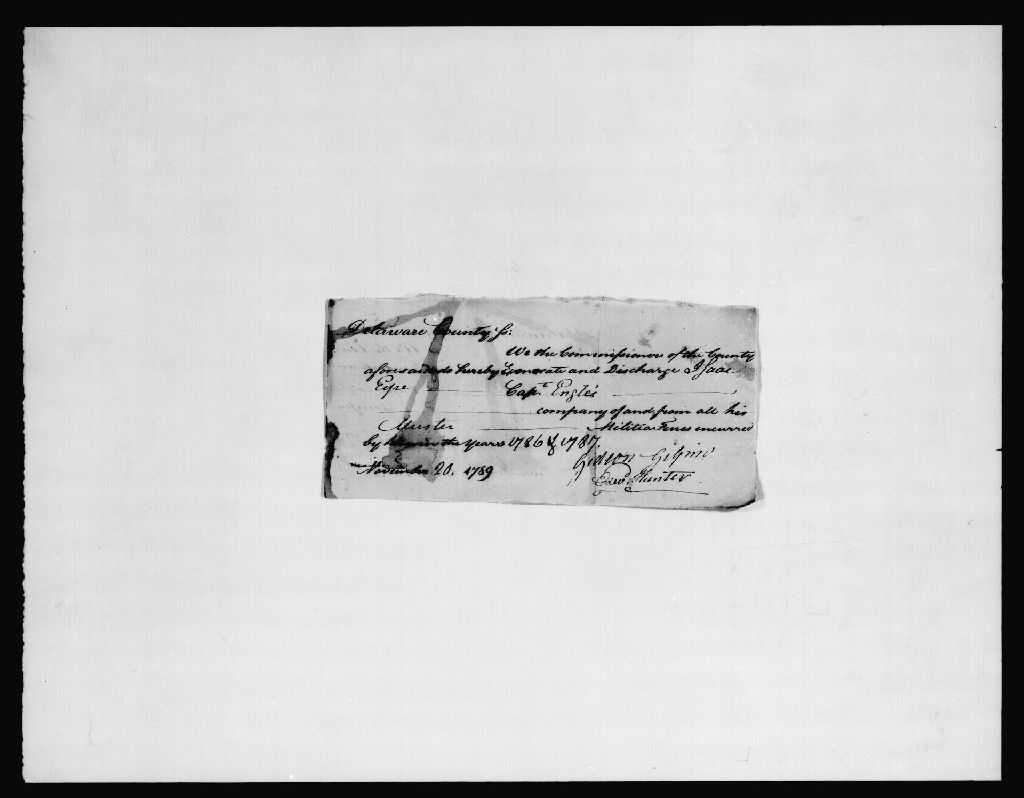 Delaware County Ss:
We the Commissioners of the County
aforesaid do hereby Exonerate and Discharge Isaac
Capt. Engles
company of and from all his
Muster Militia Fines incurred
by him in the Years 1786 & 1787.
November 20. 1789 Gideon Gilpin
Hunter